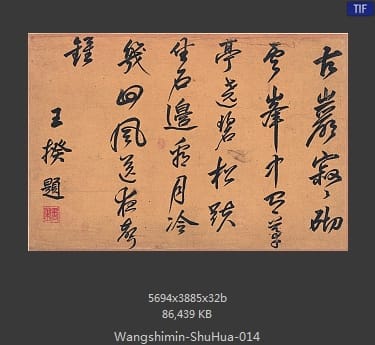 TIF
古巖寂〻砌
雲峯中有草
亭遶碧松趺
坐石邊看月冷
幾回風送夜聲
鍾
王揆題
5694x3885x32b
86,439 KB
Wangshimin-ShuHua-014